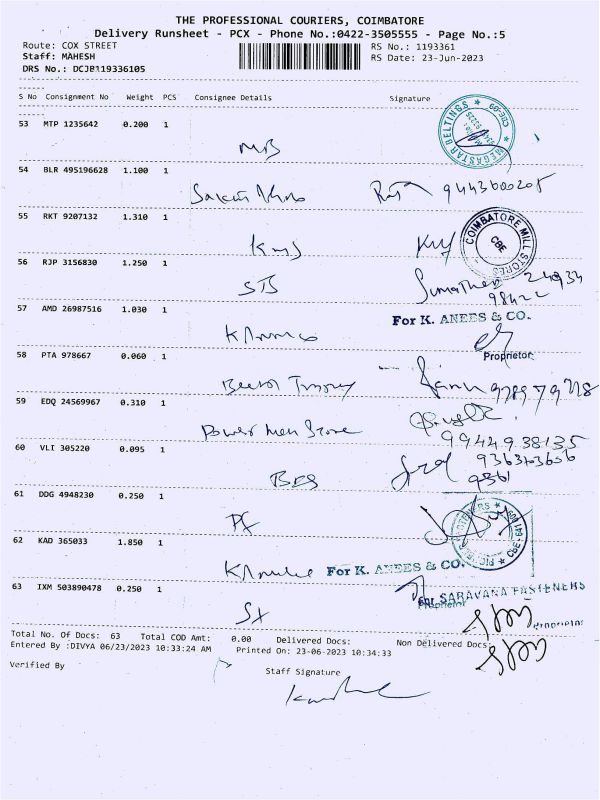 THE PROFESSIONAL COURIERS, COIMBATORE
Delivery Runsheet - PCX - Phone No.:0422-3505555 - Page No.:5
Route: COX STREET RS No.: 1193361
Staff: MAHESH RS Date: 23-Jun-2023
DRS No.: DCJB119336105
S No Consignment No Weight PCS Consignee Details Signature
53 MTP 1235642 0.200 1
MEGASTAR BELTINGS CBE-09
MB
54 BLR 495196628 1.100 1
9443600205
55 RKT 9207132 1.310 1
KMS
COIMBATORE MILL STORES CBE
56 RJP 3156830 1.250 1
STS
98422
57 AMD 26987516 1.030 1
For K. ANEES & CO.
58 PTA 978667 0.060 1
Proprietor
59 EDQ 24569967 0.310 1
Power Men Store
9944938135
60 VLI 305220 0.095 1
BES
9361
61 DDG 4948230 0.250 1
PF
62 KAD 365033 1.850 1
For K. ANEES & CO.
63 IXM 503890478 0.250 1
For SARAVANA FASTENERS
Proprietor
Sx
Proprietor
Total No. Of Docs: 63 Total COD Amt: 0.00 Delivered Docs: Non Delivered Docs:
Entered By :DIVYA 06/23/2023 10:33:24 AM Printed On: 23-06-2023 10:34:33
Verified By Staff Signature